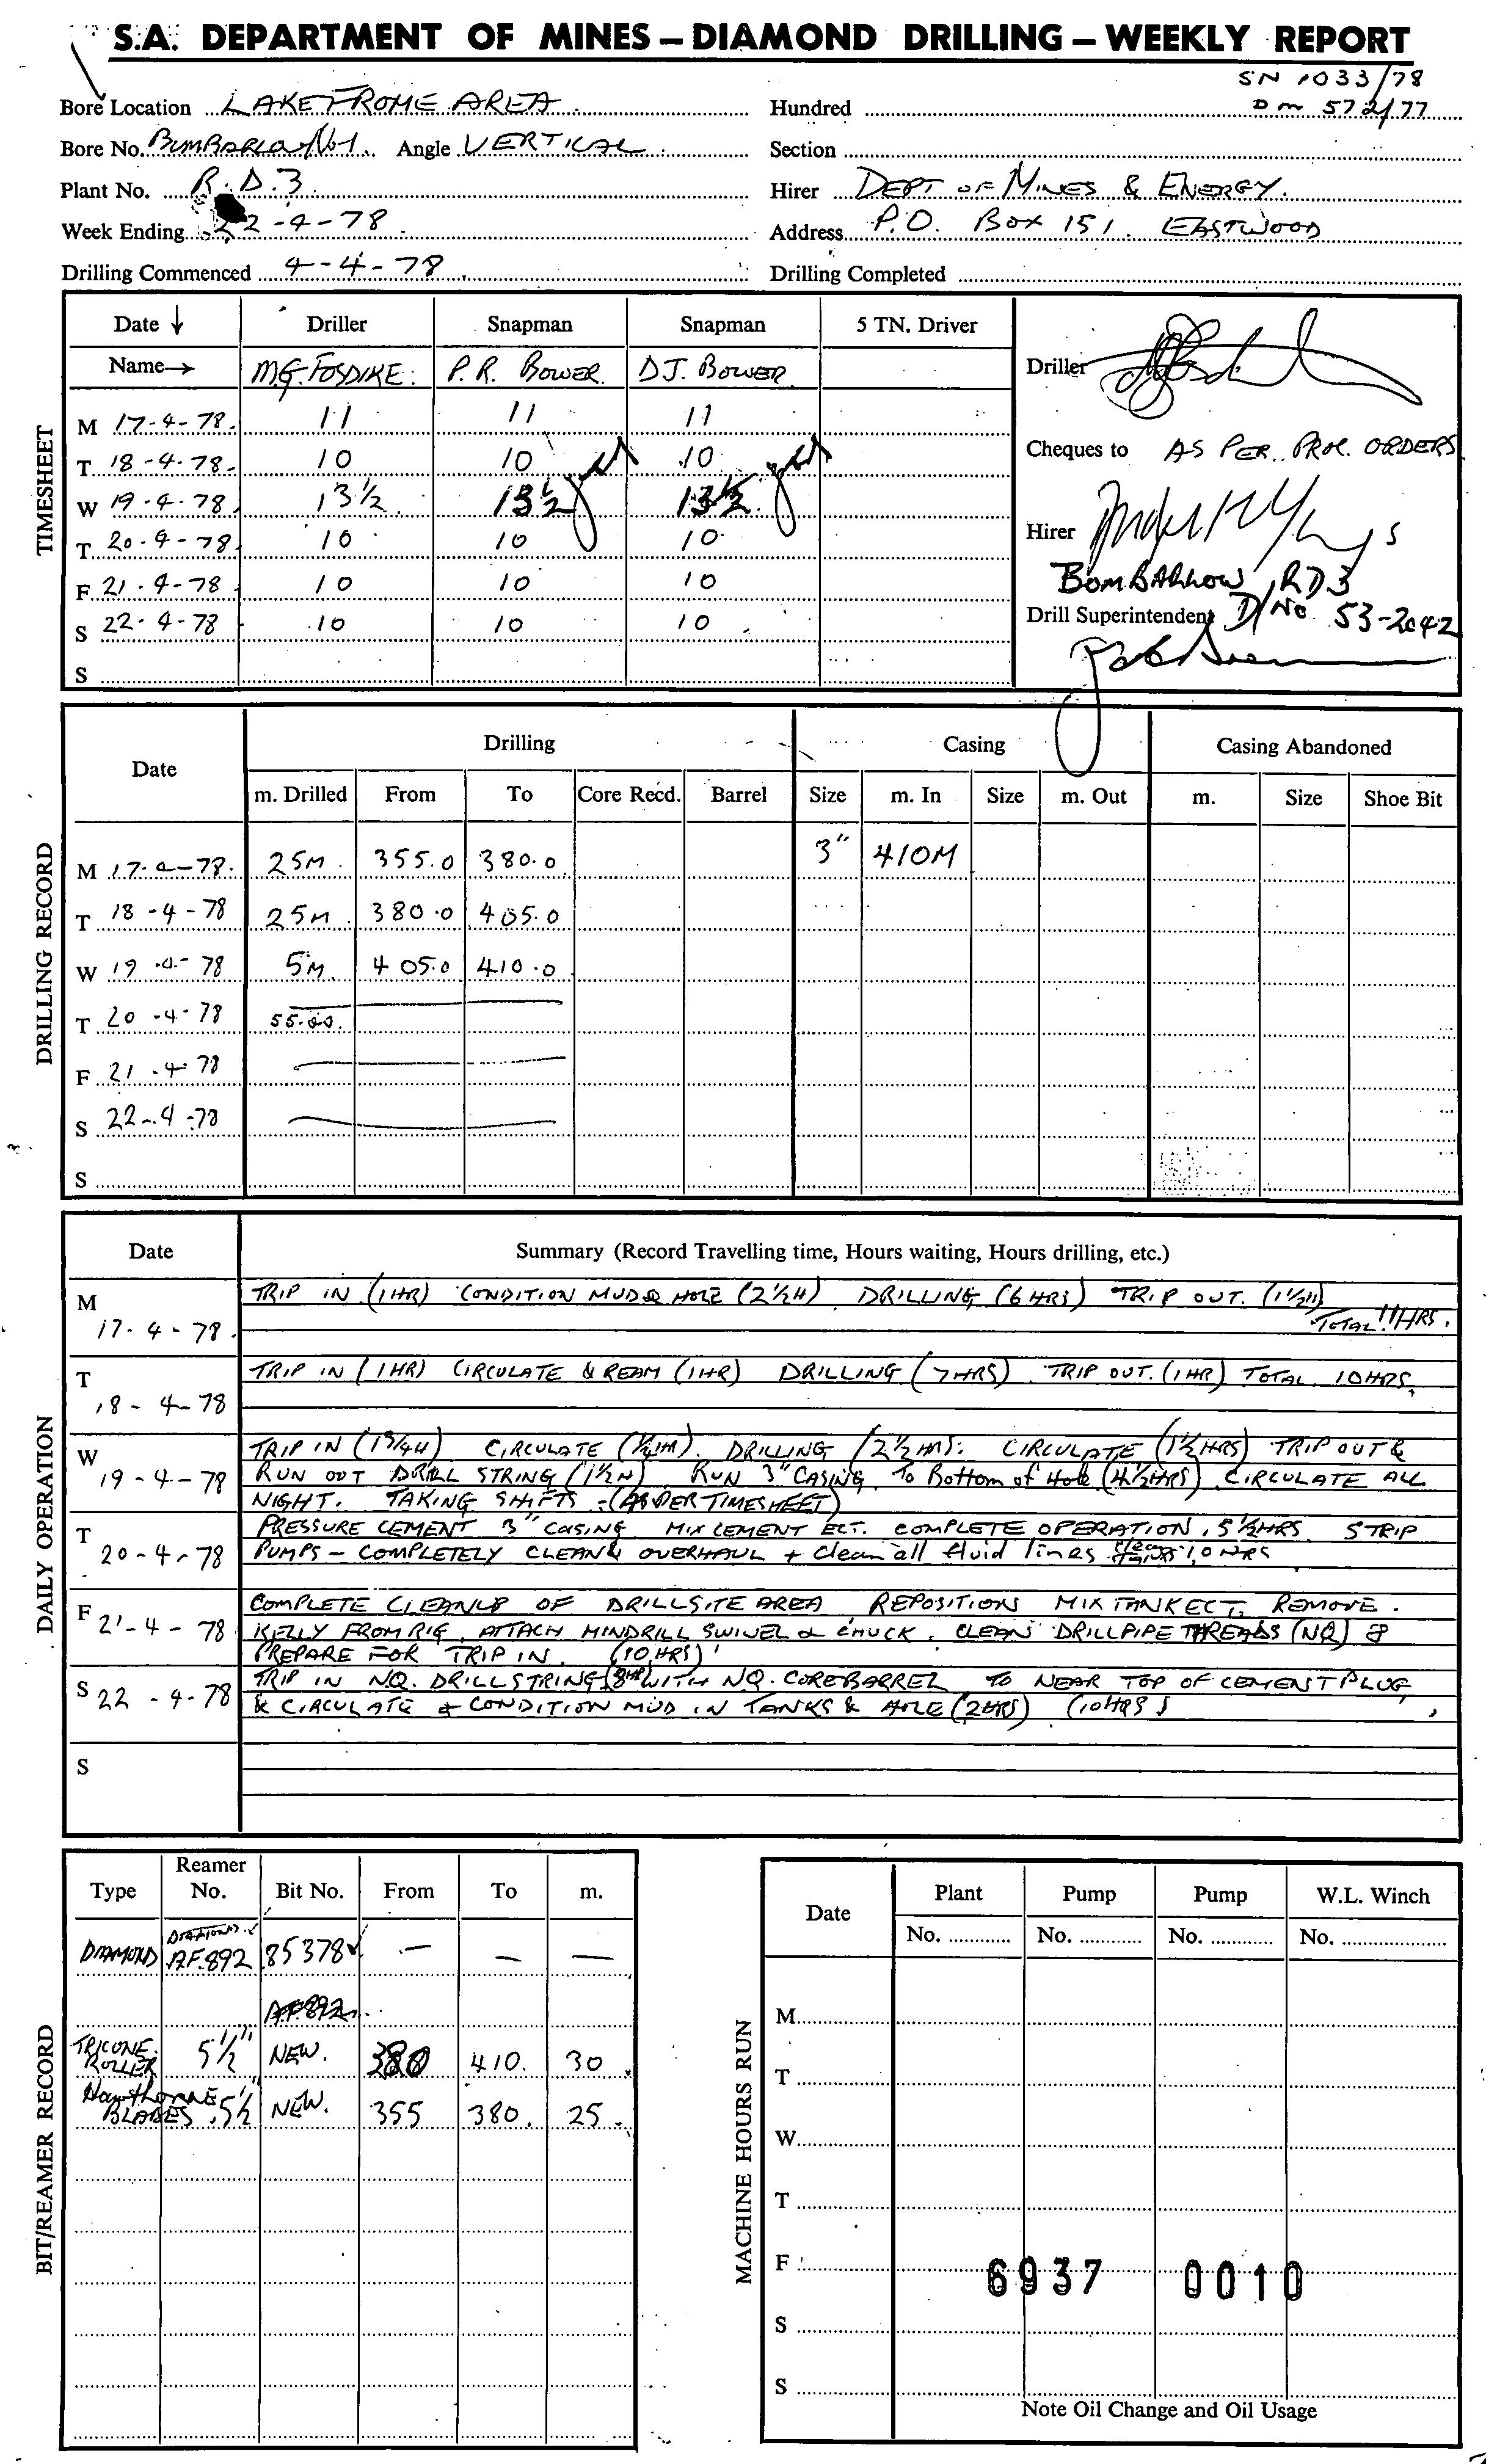 S.A. DEPARTMENT OF MINES – DIAMOND DRILLING – WEEKLY REPORT
SN 1033/78
Bore Location LAKE FROME AREA Hundred DM 572/77
Bore No. Angle VERTICAL Section
Plant No. R.D.3 Hirer DEPT OF MINES & ENERGY.
Week Ending 22-4-78 Address P.O. BOX 151. EASTWOOD
Drilling Commenced 4-4-78 Drilling Completed
TIMESHEET
Date ↓ Driller Snapman Snapman 5 TN. Driver
Name → M.G. FOSDIKE. P.R. BOWER. D.J. BOWER. Driller
M 17-4-78. 11 11 11
T 18-4-78. 10 10 10 Cheques to AS PER. PROC. ORDERS
W 19-4-78 13½ 13½ 13½
T 20-4-78 10 10 10 Hirer
F 21-4-78 10 10 10 BOMBARLOW RD3
S 22-4-78 10 10 10 Drill Superintendent D/No. 53-2042
S
DRILLING RECORD
Date Drilling Casing Casing Abandoned
m. Drilled From To Core Recd. Barrel Size m. In Size m. Out m. Size Shoe Bit
M 17-4-78. 25M. 355.0 380.0 3" 410M
T 18-4-78 25M. 380.0 405.0
W 19-4-78 5M. 405.0 410.0
T 20-4-78 55.00.
F 21-4-78
S 22-4-78
S
DAILY OPERATION
Date Summary (Record Travelling time, Hours waiting, Hours drilling, etc.)
M 17-4-78. TRIP IN (1HR) CONDITION MUD & HOLE (2½H) DRILLING (6 HRS) TRIP OUT. (1½H)
TOTAL 11HRS.
T 18-4-78 TRIP IN (1HR) CIRCULATE & REAM (1HR) DRILLING (7HRS) TRIP OUT. (1HR) TOTAL 10HRS.
W 19-4-78 TRIP IN (1¾H) CIRCULATE DRILLING (2½HRS. CIRCULATE (1½HRS) TRIP OUT &
RUN OUT DRILL STRING (1½H) RUN 3" CASING To Bottom of Hole (4½HRS) CIRCULATE ALL
NIGHT. TAKING SHIFTS - (AS PER TIMESHEET)
T 20-4-78 PRESSURE CEMENT 3" CASING MIX CEMENT ECT. COMPLETE OPERATION. 5½HRS. STRIP
PUMPS – COMPLETELY CLEAN & OVERHAUL + clean all fluid lines 10 HRS
F 21-4-78 COMPLETE CLEANUP OF DRILLSITE AREA REPOSITION MIX TANK ECT. REMOVE.
KELLY FROM RIG. ATTACH MINDRILL SWIVEL & CHUCK. CLEAN DRILLPIPE THREADS (NQ) &
PREPARE FOR TRIP IN. (10 HRS)
S 22-4-78 TRIP IN N.Q. DRILLSTRING (8HR) WITH N.Q. COREBARREL TO NEAR TOP OF CEMENT PLUG,
& CIRCULATE & CONDITION MUD IN TANKS & HOLE (2HRS) (10HRS)
S
BIT/REAMER RECORD
Type Reamer No. Bit No. From To m.
DIAMOND 85378 — — —
TRICONE ROLLER 5½" NEW. 380 410. 30.
Hawthorne BLADES 5½" NEW. 355 380. 25.
MACHINE HOURS RUN
Date Plant Pump Pump W.L. Winch
No. No. No. No.
M
T
W
T
F 6937 0010
S
S
Note Oil Change and Oil Usage